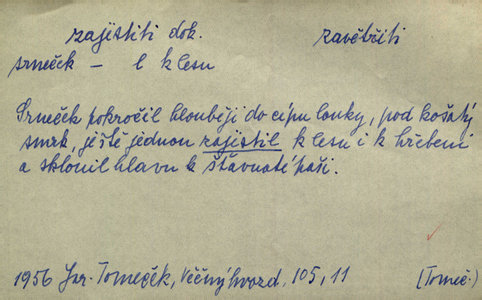 zajistiti dok. zavětřiti
srneček – l k lesu
Srneček pokročil hlouběji do cípu louky, pod košatý
smrk, ještě jednou zajistil k lesu i k hřebeni
a sklonil hlavu k šťavnaté paši.
1956 Jar. Tomeček, Věčný hvozd, 105, 11 (Tomeč.)